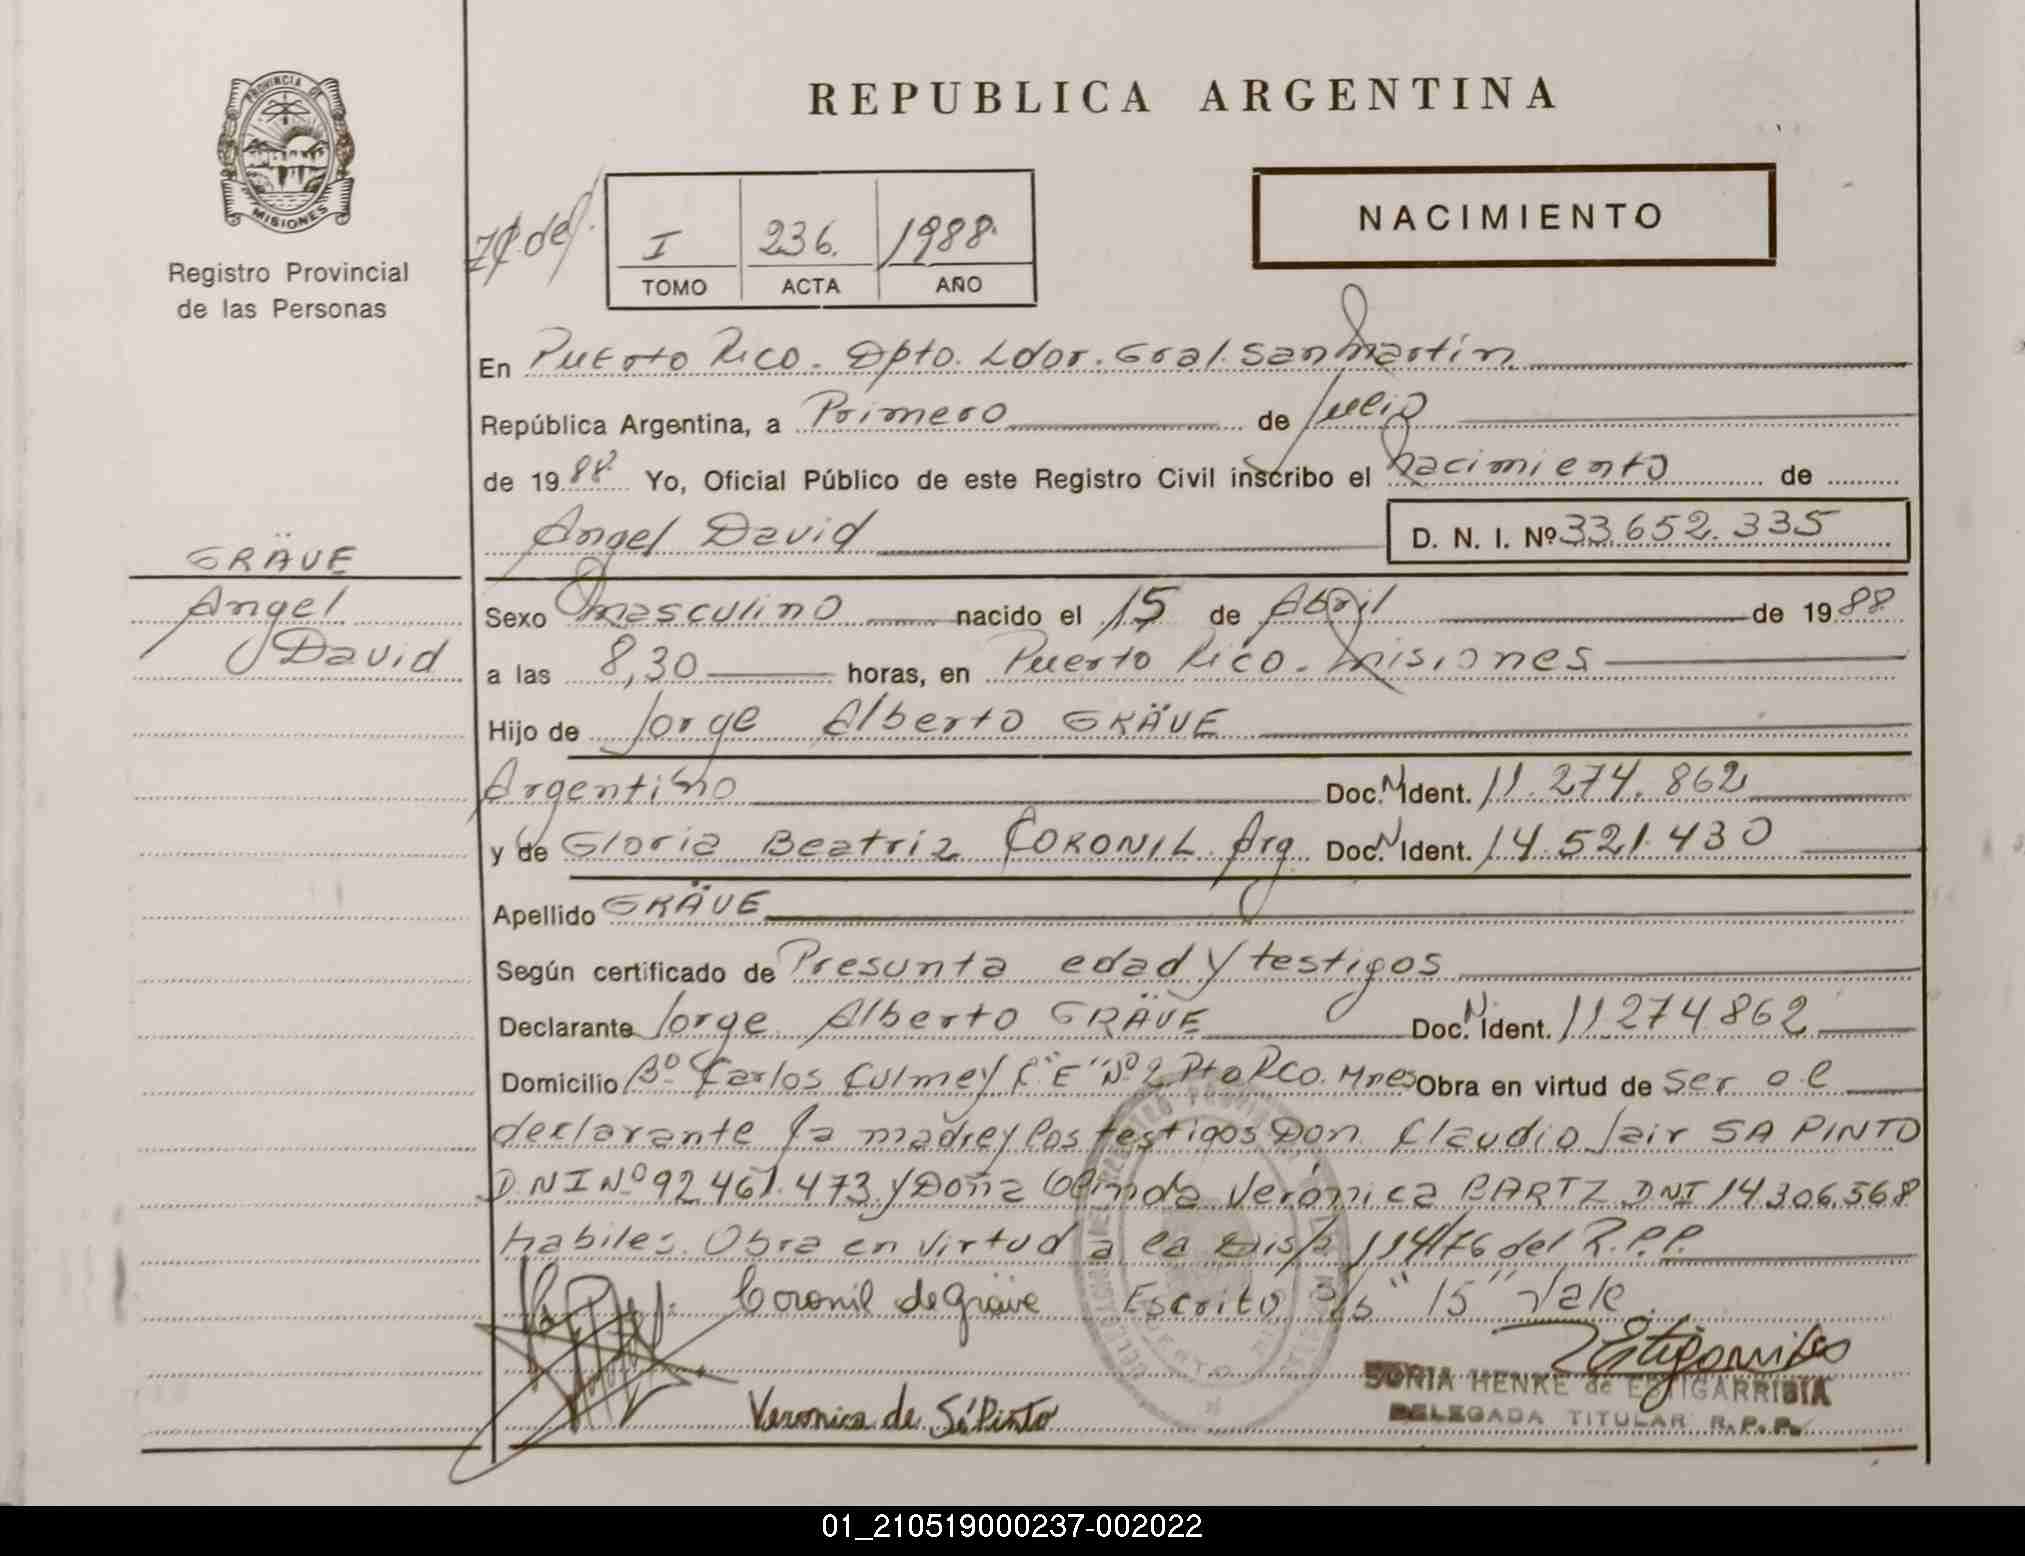 REPUBLICA ARGENTINA
PROVINCIA DE
MISIONES
Registro Provincial
de las Personas
I 236. 1988.
TOMO ACTA AÑO
NACIMIENTO
En Puerto Rico. Dpto. Ldor. Gral. San Martín
República Argentina, a Primero de Julio
de 1988 Yo, Oficial Público de este Registro Civil inscribo el nacimiento de
Angel David D. N. I. Nº 33.652.335
GRÄVE
Angel
David
Sexo masculino nacido el 15 de Abril de 1988
a las 8,30 horas, en Puerto Rico. Misiones
Hijo de Jorge Alberto GRÄVE
Argentino Doc. N Ident. 11.274.862
y de Gloria Beatriz CORONIL Arg. Doc. N Ident. 14.521.430
Apellido GRÄVE
Según certificado de Presunta edad y testigos
Declarante Jorge Alberto GRÄVE Doc. N Ident. 11274862
Domicilio Bº Carlos Culmey C. "E" Nº 2 Pto Rco. Mnes Obra en virtud de ser el
declarante la madre y los testigos Don Claudio Jair SA PINTO
D.N.I Nº 92.461.473 y Doña Verónica BARTZ DNI 14.306.568
habiles. Obra en virtud a la Disp. 114/76 del R.P.P.
Coronil de Gräve Escrito s/b "15" Vale.
SONIA HENKE de ESTIGARRIBIA
DELEGADA TITULAR R.P.P.
Veronica de SáPinto
01_210519000237-002022